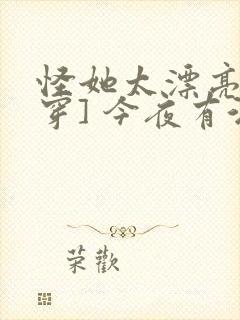 怪她太漂亮
穿] 今夜有
荣歡